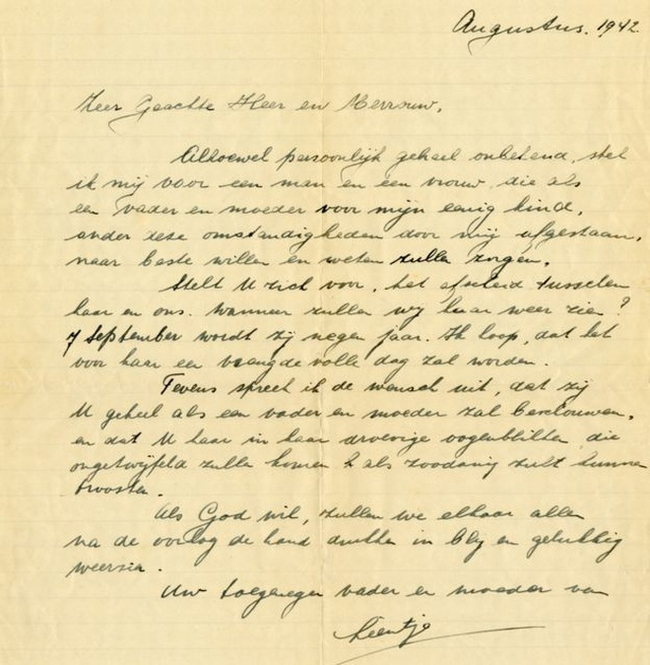 Augustus. 1942.
Zeer Geachte Heer en Mevrouw,
Alhoewel persoonlijk geheel onbekend, stel
ik mij voor een man en een vrouw, die als
een vader en moeder voor mijn eenig kind,
onder deze omstandigheden door mij afgestaan,
naar beste willen en weten zullen zorgen.
Stelt U zich voor, het afscheid tusschen
haar en ons. Wanneer zullen wij haar weer zien?
7 September wordt zij negen jaar. Ik hoop, dat het
voor haar een vreugde volle dag zal worden.
Tevens spreek ik de wensch uit, dat zij
U geheel als een vader en moeder zal beschouwen,
en dat U haar in haar droevige oogenblikken die
ongetwijfeld zullen komen als zoodanig zult kunnen
troosten.
Als God wil, zullen we elkaar allen
na de oorlog de hand drukken in blij en gelukkig
weerzien.
Uw toegenegen vader en moeder van
Leentje